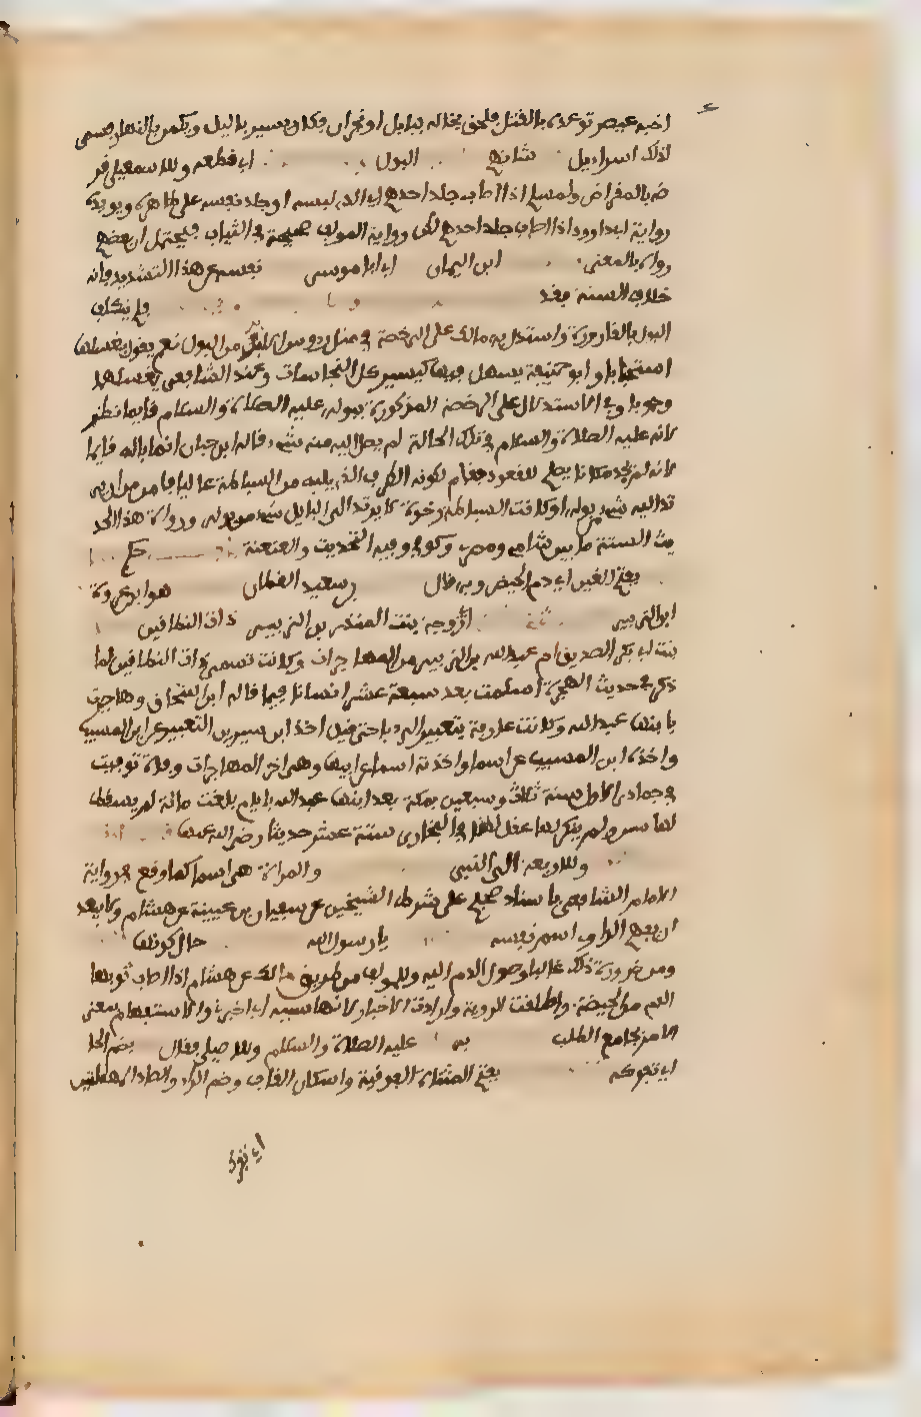 اخيه عيصو توعده بالقتل فلحق بخاله ببابل او نجران فكان يسير بالليل ويكمن بالنهار فسمى
لذلك اسراءيل شانه البول اي قطعه وللاسمعيلي قر
ضه بالمقراض ولمسلم اذا اصاب جلد احدهم اي الذي لبسه او جلد نفسه على ظاهره ويويده
رواية ابي داوود اذا اصاب جلد احدهم لكن رواية المولف صريحة في الثياب فيحتمل ان بعضهم
رواه بالمعنى ابن اليمان اي ابا موسى نفسه عن هذا التشديد فانه
خلاف السنة فقد ولم يتكلف
البول بالقارورة واستدل به مالك على الرخصة في مثل رووس الابر من البول نعم يقول بغسلها
استحبابا وابو حنيفة يسهل فيها كيسير كل النجاسات وعند الشافعي يغسلها
وجوبا وفي الاستدلال على الرخصة المذكورة ببوله عليه الصلاة والسلام قايما نظر
لانه عليه الصلاة والسلام في تلك الحالة لم يصل اليه منه شيء قال ابن حبان انما بال قايما
لانه لم يجد مكانا يصلح للقعود فقام لكون الطرف الذي يليه من السباطة عاليا فامن من ان ير
تد اليه شيء من بوله او كانت السباطة رخوة لا يرتد الى البايل شيء من بوله ورواة هذا الحد
يث الستة ما بين شامي ومصري وكوفي وفيه التحديث والعنعنة
بفتح الغين اي دم الحيض وبه قال بن سعيد القطان هو ابن عروة
ابن الزبير زوجه بنت المنذر بن الزبير ذات النطاقين
بنت ابي بكر الصديق ام عبد الله بن الزبير من المهاجرات وكانت تسمى ذات النطاقين لما
ذكر في حديث الهجرة اسلمت بعد سبعة عشر انسانا فيما قاله ابن اسحاق وهاجرت
بابنها عبد الله وكانت عارفة بتعبير الرويا حتى قيل اخذ ابن سيرين التعبير عن ابن المسيب
واخذه ابن المسيب عن اسما واخذته اسما عن ابيها وهي اخر المهاجرات وفاة توفيت
في جمادى الاولى سنة ثلاث وسبعين بمكة بعد ابنها عبد الله بايام بلغت مائة لم يسقط
لها سن ولم ينكر لها عقل لها في البخاري ستة عشر حديثا رضي الله عنها
وللاربعة الى النبي والمراة هي اسما كما وقع في رواية
الامام الشافعي باسناد صحيح على شرط الشيخين عن سفيان بن عيينة عن هشام ولا يبعد
ان يبهم الراوي اسم نفسه يا رسول الله حال كونها
ومن ضرورة ذلك غالبا وصول الدم اليه وللمولف من طريق مالك عن هشام اذا اصاب ثوبها
الدم من الحيضة واطلقت الروية وارادت الاخبار لانها سببه اي اخبرني والاستفهام بمعنى
الامر بجامع الطلب عليه الصلاة والسلام وللاصيلي فقال بضم الحا
اي تفركه بفتح المثناة الفوقية واسكان القاف وضم الرا والصاد المهملتين